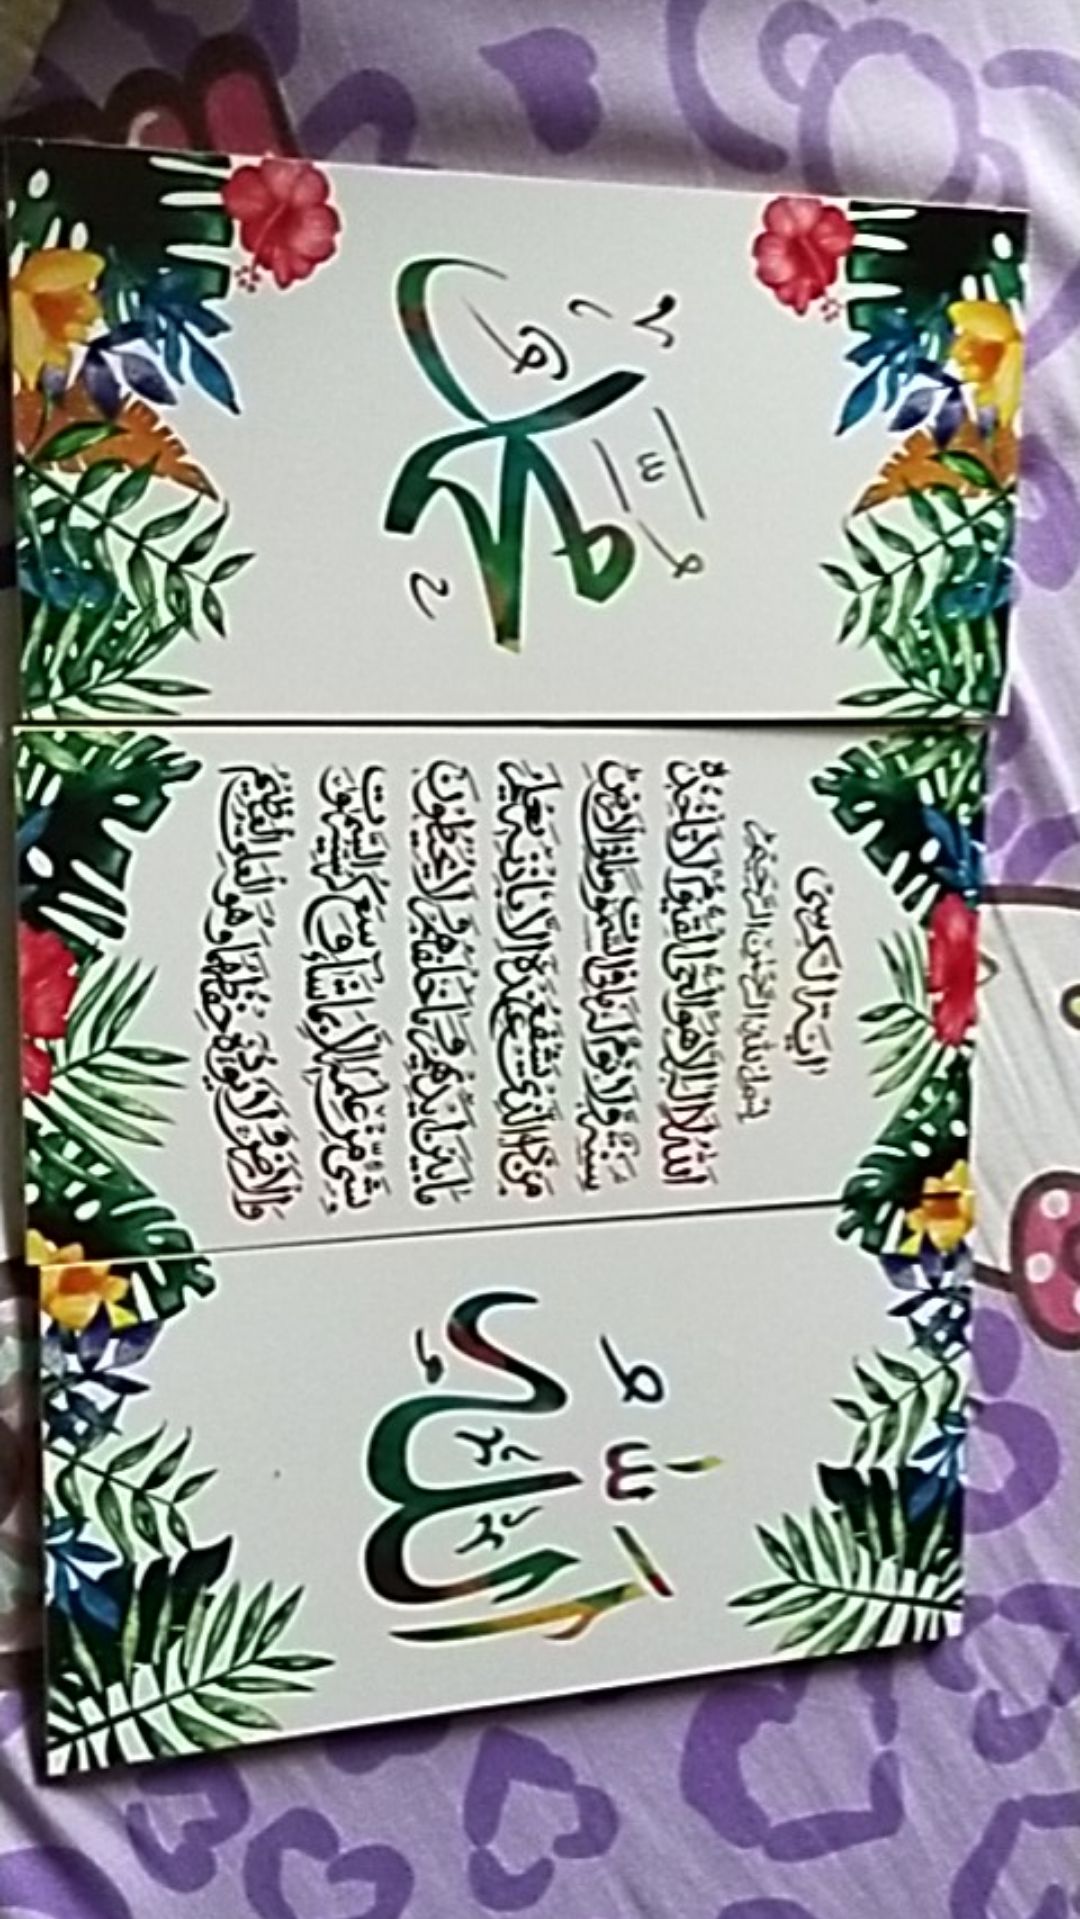 اَللّٰهُ
اٰيَةُ الْكُرْسِيّ
بِسْمِ اللّٰهِ الرَّحْمٰنِ الرَّحِيْمِ
اَللّٰهُ لَآ اِلٰهَ اِلَّا هُوَ الْحَيُّ الْقَيُّوْمُ لَا تَأْخُذُهُ
سِنَةٌ وَّلَا نَوْمٌ لَهُ مَا فِى السَّمٰوٰتِ وَمَا فِى الْاَرْضِ
مَنْ ذَا الَّذِيْ يَشْفَعُ عِنْدَهُ اِلَّا بِاِذْنِهِ يَعْلَمُ
مَا بَيْنَ اَيْدِيْهِمْ وَمَا خَلْفَهُمْ وَلَا يُحِيْطُوْنَ
بِشَيْءٍ مِّنْ عِلْمِهِ اِلَّا بِمَا شَآءَ وَسِعَ كُرْسِيُّهُ السَّمٰوٰتِ
وَالْاَرْضَ وَلَا يَـُٔوْدُهُ حِفْظُهُمَا وَهُوَ الْعَلِيُّ الْعَظِيْمُ
مُحَمَّدٌ